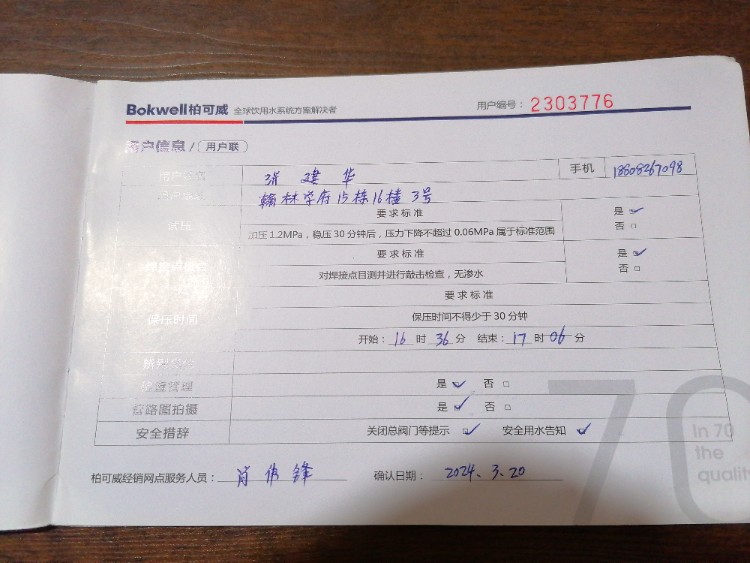 Bokwell柏可威 全球饮用水系统方案解决者 用户编号：2303776
客户信息/用户联
张建华 手机 18808267098
翰林学府15栋16楼3号
试压 要求标准 是 ✓
加压1.2MPa，稳压30分钟后，压力下降不超过0.06MPa属于标准范围 否 □
要求标准 是 ✓
对焊接点目测并进行敲击检查，无渗水 否 □
要求标准
保压时间 保压时间不得少于30分钟
开始：16时36分 结束：17时06分
管理 是 ✓ 否 □
管路图拍摄 是 ✓ 否 □
安全措辞 关闭总阀门等提示 ✓ 安全用水告知 ✓
柏可威经销网点服务人员：肖伟锋 确认日期：2024.3.20
In 70
the
qualit
70